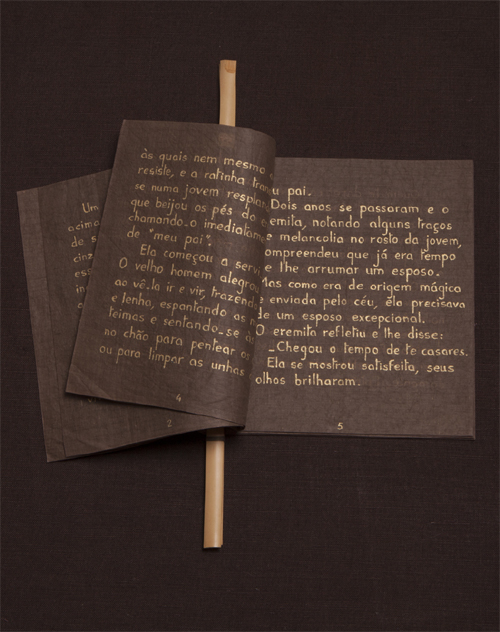 Um
acima
de s
cinz
2
às quais nem mesmo
resiste, e a ratinha tran
se numa jovem resplan
que beijou os pés do e
chamando-o imediatame
de "meu pai".
Ela começou a servi
O velho homem alegrou
ao vê-la ir e vir, trazend
e lenha, espantando as
teimas e sentando-se
no chão para pentear os
ou para limpar as unhas
4
u pai.
Dois anos se passaram e o
emita, notando alguns traços
e melancolia no rosto da jovem,
ompreendeu que já era tempo
e lhe arrumar um esposo.
Mas como era de origem mágica
e enviada pelo céu, ela precisava
de um esposo excepcional.
O eremita refletiu e lhe disse:
_Chegou o tempo de te casares.
Ela se mostrou satisfeita, seus
olhos brilharam.
5